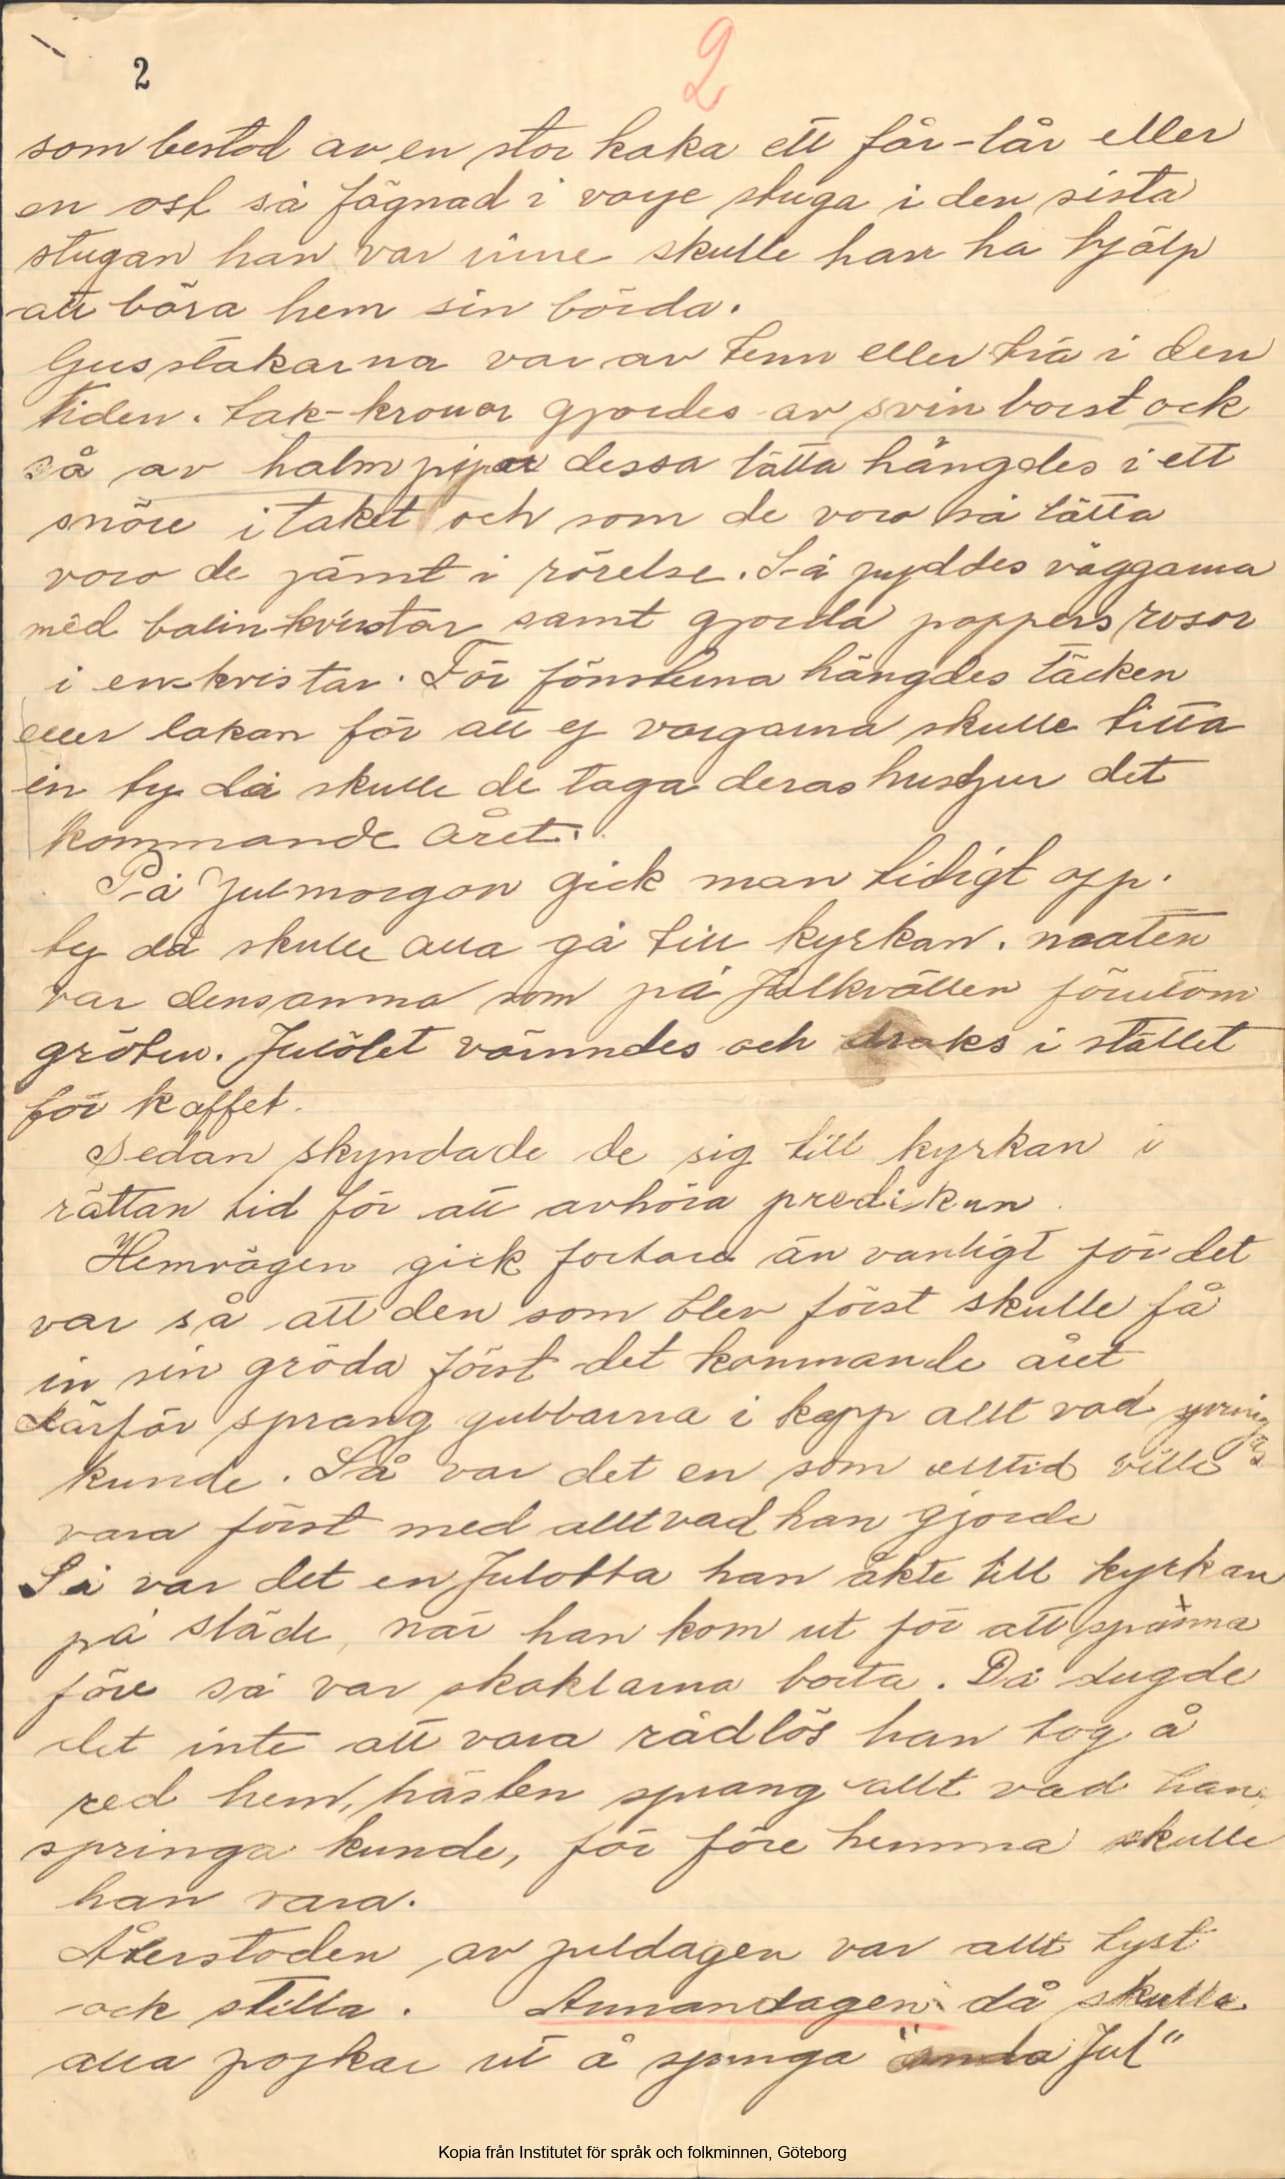 2
2
som bestod av en stor kaka ett får-lår eller
en ost så fägnad i varje stuga i den sista
stugan han var inne skulle han ha hjälp
att bära hem sin börda.
Ljusstakarna var av tenn eller trä i den
tiden. tak-kronor gjordes av svin borst ock
så av halm pipor dessa lätta hängdes i ett
snöre i taket och som de voro så lätta
voro de jämt i rörelse. Så pyddes väggarna
med kvistar samt gjorda pappers rosor
i enekvistar. För fönsterna hängdes täcken
eller lakan för att ej vargarna skulle titta
in ty då skulle de taga deras husdjur det
kommande året.
På Julmorgon gick man tidigt opp.
ty då skulle alla gå till kyrkan. maten
var densamma som på Julkvällen förutom
gröten. Julölet värmdes och draks i stället
för kaffet.
Sedan skyndade de sig till kyrkan i
rättan tid för att avhöra predikan
Hemvägen gick fortare än vanligt för det
var så att den som blev först skulle få
in sin gröda först det kommande året
därför sprang gubbarna i kapp allt vad springas
kunde. Så var det en som alltid ville
vara först med allt vad han gjorde
Så var det en Julotta han åkte till kyrkan
på släde, när han kom ut för att spänna
före så var skaklarna borta. Då dugde
det inte att vara rådlös han tog å
red hem, hästen sprang allt vad han
springa kunde, för före hemma skulle
han vara.
Återstoden av juldagen var allt tyst
ock stilla. Annandagen då skulle
alla pojkar ut å springa "anda Jul"
Kopia från Institutet för språk och folkminnen, Göteborg